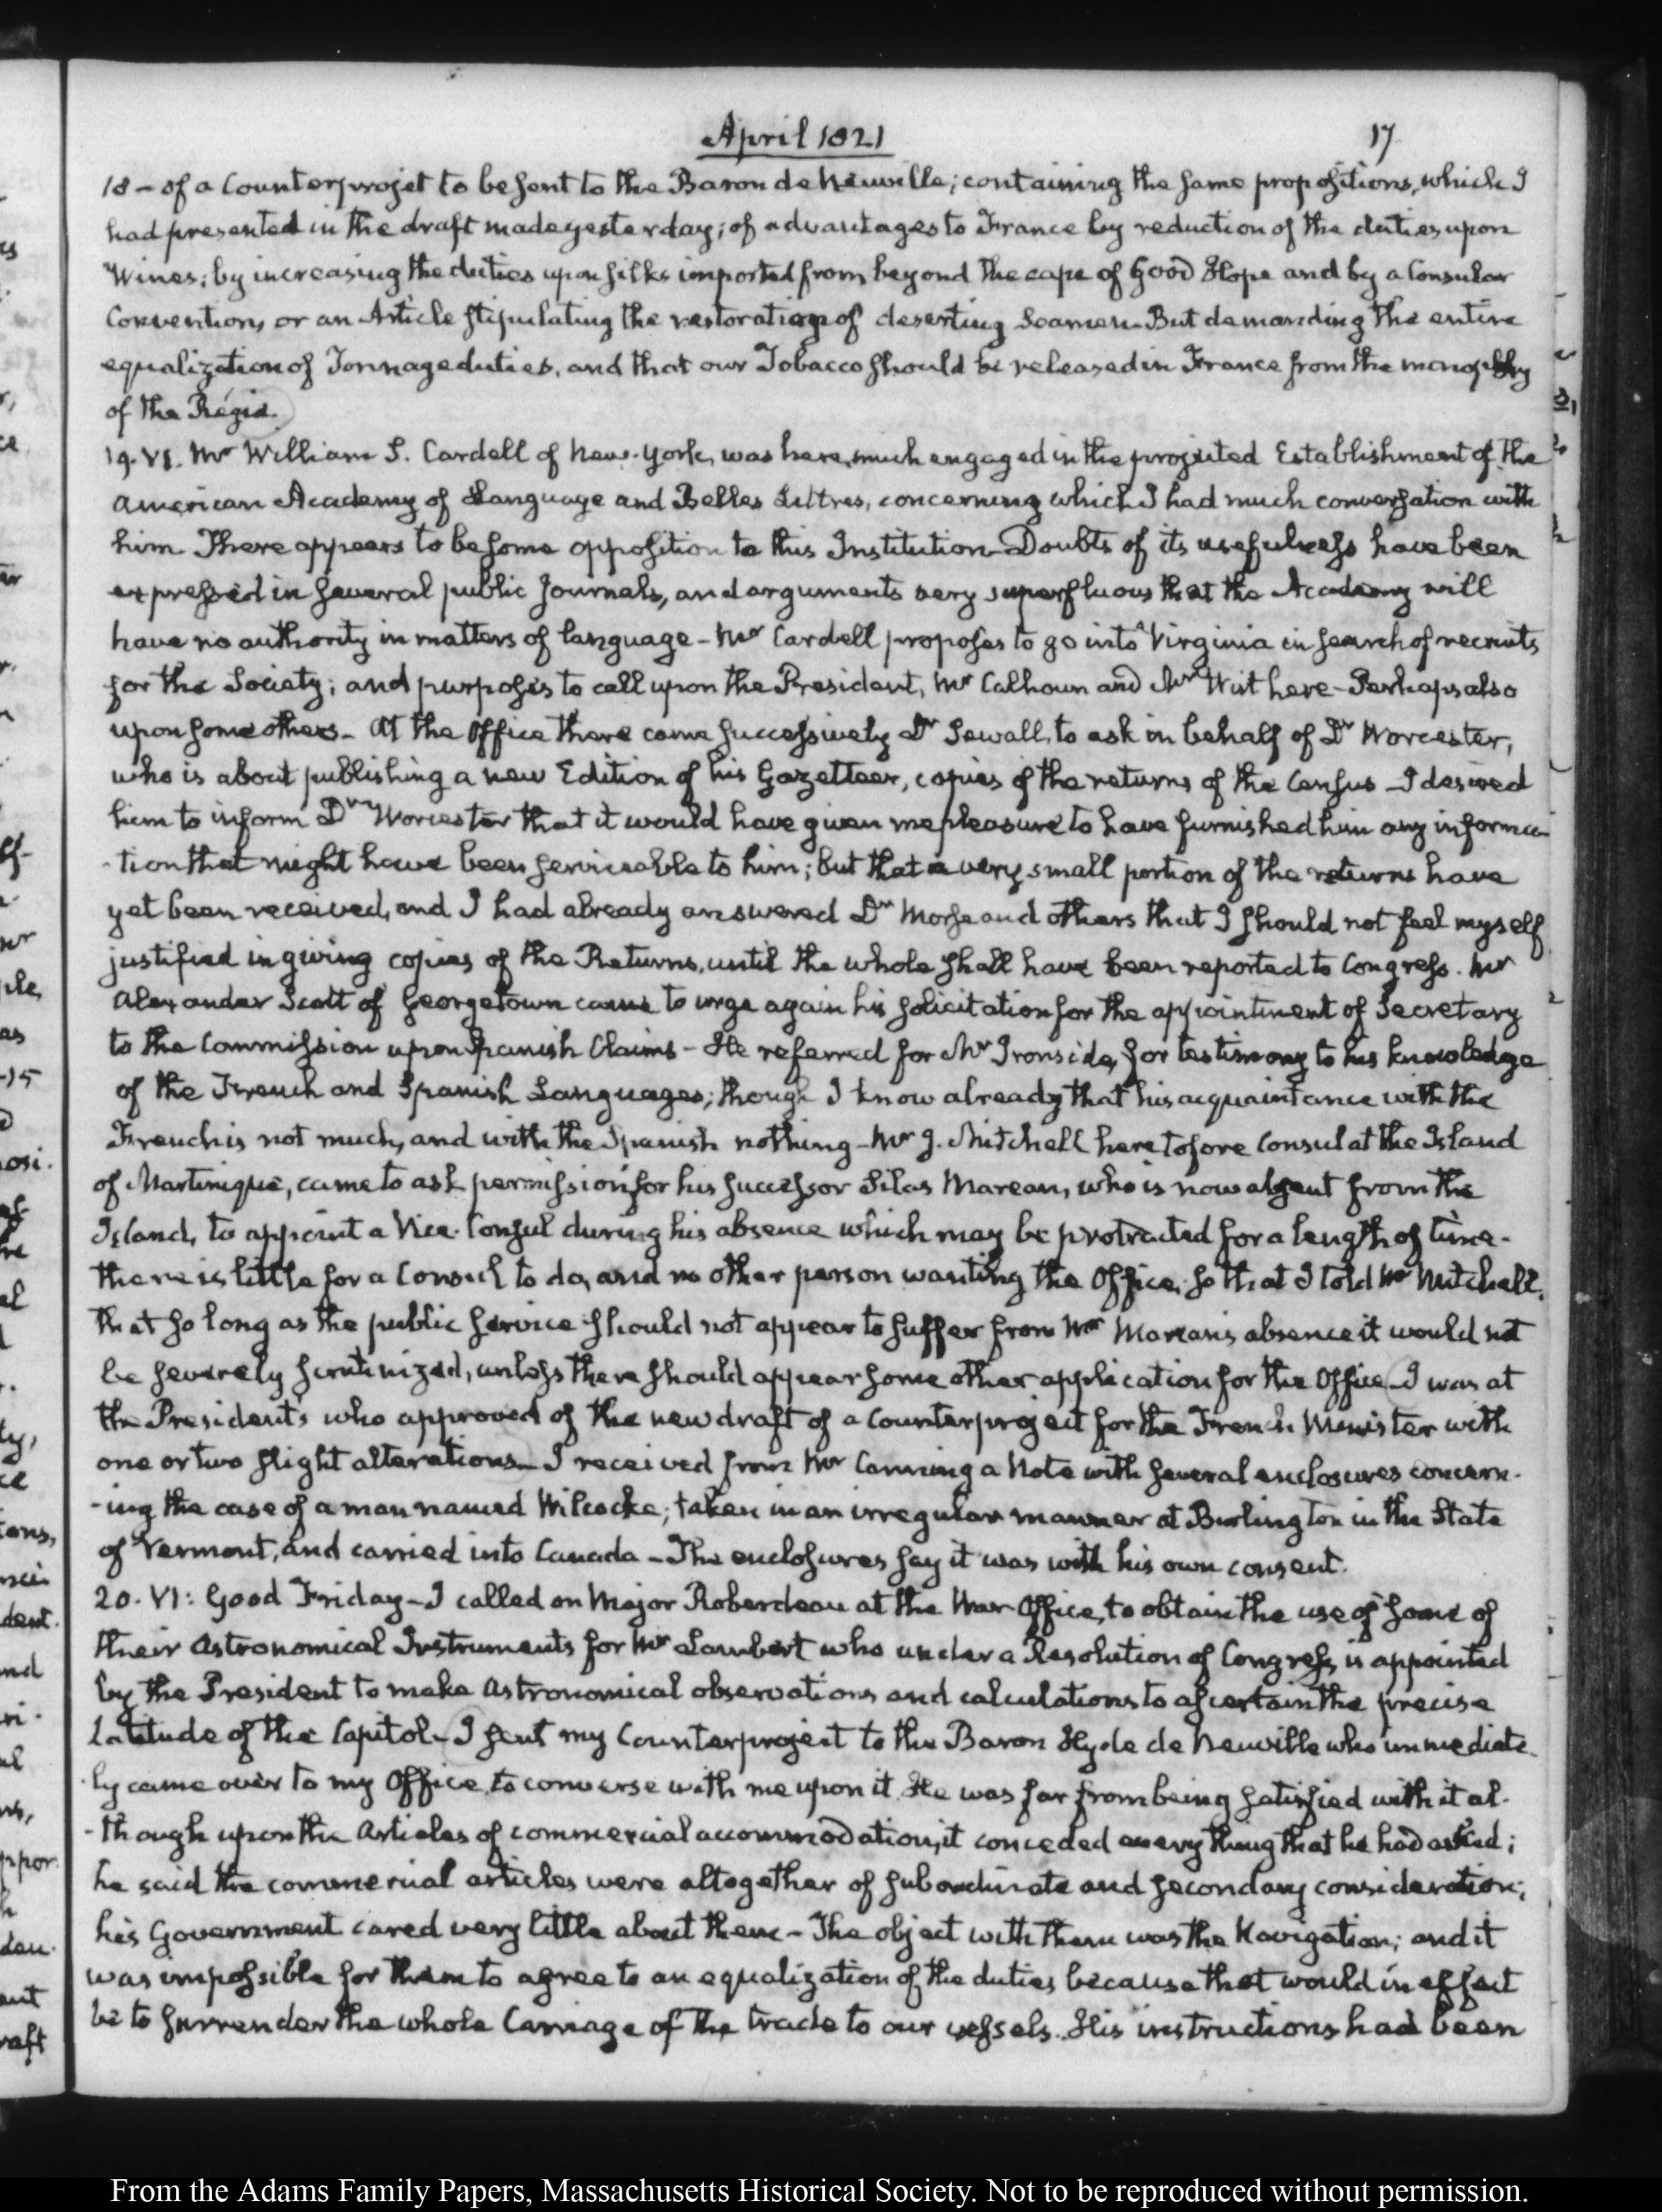 April 1821
17
18 - of a Counterprojet to be sent to the Baron de Neuville; containing the same propositions, which I
had presented in the draft made yesterday; of advantages to France by reduction of the duties upon
Wines; by increasing the duties upon silks imported from beyond the cape of Good Hope and by a Consular
Convention, or an Article stipulating the restoration of deserting Seamen - But demanding the entire
equalization of Tonnage duties, and that our Tobacco should be released in France from the monopoly
of the Régie.
19. VI. Mr William S. Cardell of New-York, was here, much engaged in the projected Establishment of the
American Academy of Language and Belles Lettres, concerning which I had much conversation with
him. There appears to be some opposition to this Institution - Doubts of its usefulness have been
expressed in several public Journals, and arguments very superfluous that the Academy will
have no authority in matters of language - Mr Cardell proposes to go into Virginia in search of recruits
for the Society; and purposes to call upon the President, Mr Calhoun and Mr Wirt here - Perhaps also
upon some others - At the Office there came successively Dr Sewall, to ask in behalf of Dr Worcester,
who is about publishing a new Edition of his Gazetteer, copies of the returns of the Census - I desired
him to inform Dr Worcester that it would have given me pleasure to have furnished him any informa-
-tion that might have been serviceable to him; but that a very small portion of the returns have
yet been received, and I had already answered Dr Morse and others that I should not feel myself
justified in giving copies of the Returns, until the whole shall have been reported to Congress. Mr
Alexander Scott of Georgetown came to urge again his solicitation for the appointment of Secretary
to the Commission upon Spanish Claims - He referred for Mr Ironside, for testimony to his knowledge
of the French and Spanish Languages; though I know already that his acquaintance with the
French is not much, and with the Spanish nothing - Mr J. Mitchell heretofore Consul at the Island
of Martinique, came to ask permission for his successor Silas Marean, who is now absent from the
Island, to appoint a Vice-Consul during his absence which may be protracted for a length of time -
there is little for a Consul to do, and no other person wanting the Office; so that I told Mr Mitchell,
that so long as the public service should not appear to suffer from Mr Marean's absence it would not
be severely scrutinized, unless there should appear some other application for the Office - I was at
the President's who approved of the new draft of a Counterproject for the French Minister with
one or two slight alterations - I received from Mr Canning a Note with several enclosures concern-
-ing the case of a man named Wilcocke; taken in an irregular manner at Burlington in the State
of Vermont, and carried into Canada - The enclosures say it was with his own consent.
20. VI: Good Friday - I called on Major Roberdeau at the War Office, to obtain the use of some of
their Astronomical Instruments for Mr Lambert who under a Resolution of Congress, is appointed
by the President to make Astronomical observations and calculations to ascertain the precise
Latitude of the Capitol - I sent my Counterproject to the Baron Hyde de Neuville who immediate-
-ly came over to my Office to converse with me upon it. He was far from being satisfied with it al-
-though upon the Articles of commercial accommodation, it conceded every thing that he had asked;
he said the commercial articles were altogether of subordinate and secondary consideration;
his Government cared very little about them - The object with them was the Navigation; and it
was impossible for them to agree to an equalization of the duties because that would in effect
be to surrender the whole Carriage of the trade to our vessels. His instructions had been
From the Adams Family Papers, Massachusetts Historical Society. Not to be reproduced without permission.